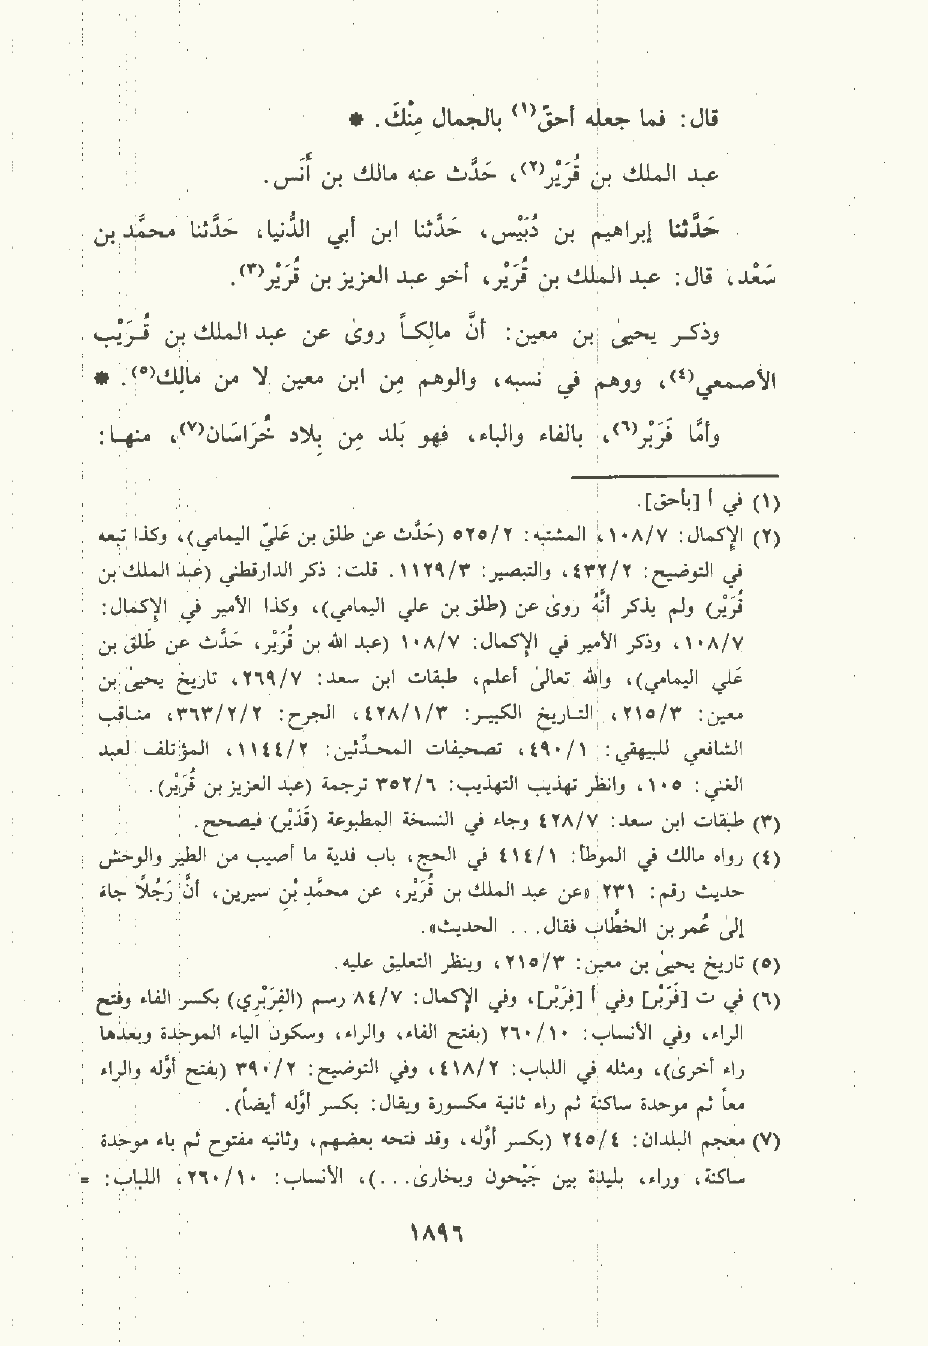 قال: فما جعله أحقّ(١) بالجمال مِنْكَ. *
عبد الملك بن قُرَيْر(٢)، حَدَّث عنه مالك بن أَنَس.
حَدَّثنا إبراهيم بن دُبَيْس، حَدَّثنا ابن أبي الدُّنيا، حَدَّثنا محمَّد بن
سَعْد، قال: عبد الملك بن قُرَيْر، أخو عبد العزيز بن قُرَيْر(٣).
وذكر يحيىٰ بن معين: أنَّ مالِكاً روىٰ عن عبد الملك بن قُرَيْب
الأصمعي(٤)، ووهم في نسبه، والوهم مِن ابن معين لا من مالِك(٥). *
وأمَّا فَرَبْر(٦)، بالفاء والباء، فهو بَلد مِن بِلاد خُرَاسَان(٧)، منها:
(١) في أ [بأحق].
(٢) الإكمال: ١٠٨/٧، المشتبه: ٥٢٥/٢ (حَدَّث عن طلق بن عَليّ اليمامي)، وكذا تبعه
في التوضيح: ٤٣٢/٢، والتبصير: ١١٢٩/٣. قلت: ذكر الدارقطني (عبد الملك بن
قُرَيْر) ولم يذكر أنَّه روىٰ عن (طلق بن علي اليمامي)، وكذا الأمير في الإكمال:
١٠٨/٧، وذكر الأمير في الإكمال: ١٠٨/٧ (عبد الله بن قُرَيْر، حَدَّث عن طَلق بن
عَلي اليمامي)، والله تعالىٰ أعلم، طبقات ابن سعد: ٢٦٩/٧، تاريخ يحيىٰ بن
معين: ٢١٥/٣، التاريخ الكبير: ٤٢٨/١/٣، الجرح: ٣٦٣/٢/٢، مناقب
الشافعي للبيهقي: ٤٩٠/١، تصحيفات المحدِّثين: ١١٤٤/٢، المؤتلف لعبد
الغني: ١٠٥، وانظر تهذيب التهذيب: ٣٥٢/٦ ترجمة (عبد العزيز بن قُرَيْر).
(٣) طبقات ابن سعد: ٤٢٨/٧ وجاء في النسخة المطبوعة (قُدَيْر) فيصحح.
(٤) رواه مالك في الموطأ: ٤١٤/١ في الحج، باب فدية ما أصيب من الطير والوحش
حديث رقم: ٢٣١ «عن عبد الملك بن قُرَيْر، عن محمَّد بن سيرين، أنَّ رَجُلاً جاء
إلىٰ عُمر بن الخطَّاب فقال... الحديث».
(٥) تاريخ يحيىٰ بن معين: ٢١٥/٣، وينظر التعليق عليه.
(٦) في ت [فَرَبْر] وفي أ [فِرَبْر]، وفي الإكمال: ٨٤/٧ رسم (الفِرَبْري) بكسر الفاء وفتح
الراء، وفي الأنساب: ٢٦٠/١٠ (بفتح الفاء، والراء، وسكون الياء الموحدة وبعدها
راء أخرىٰ)، ومثله في اللباب: ٤١٨/٢، وفي التوضيح: ٣٩٠/٢ (بفتح أوَّله والراء
معاً ثم موحدة ساكنة ثم راء ثانية مكسورة ويقال: بكسر أوَّله أيضاً).
(٧) معجم البلدان: ٢٤٥/٤ (بكسر أوَّله، وقد فتحه بعضهم، وثانيه مفتوح ثم باء موحدة
ساكنة، وراء، بليدة بين جَيْحون وبخارىٰ...)، الأنساب: ٢٦٠/١٠، اللباب: =
١٨٩٦